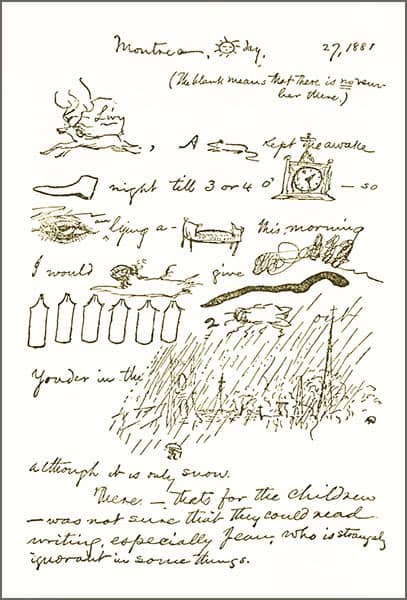 Montreal, day, 27, 1881
(The blank means that there is no reum-
ber there.)
Livy
, A kept me awake
night till 3 or 4 o' — so
am lying a- this morning
I would give
2 out
Yonder in the
although it is only snow.
There. — thats for the children
— was not sure that they could read
writing, especially Jean, who is strangely
ignorant in some things.